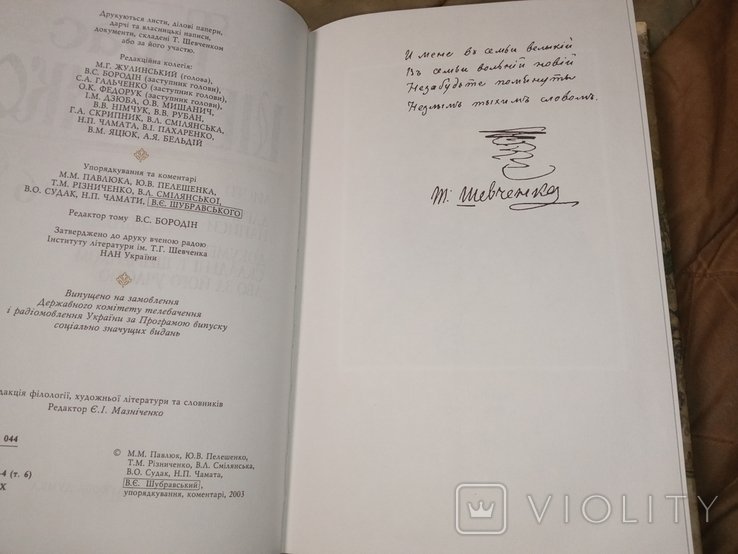 Друкуються листи, ділові папери,
дарчі та власницькі написи,
документи, складені Т. Шевченком
або за його участю.
Редакційна колегія:
М.Г. ЖУЛИНСЬКИЙ (голова),
В.С. БОРОДІН (заступник голови),
С.А. ГАЛЬЧЕНКО (заступник голови),
О.К. ФЕДОРУК (заступник голови),
І.М. ДЗЮБА, О.В. МИШАНИЧ,
В.В. НІМЧУК, В.В. РУБАН,
Г.А. СКРИПНИК, В.Л. СМІЛЯНСЬКА,
Н.П. ЧАМАТА, В.І. ПАХАРЕНКО,
В.М. ЯЦЮК, А.Я. БЕЛЬДІЙ
Упорядкування та коментарі
М.М. ПАВЛЮКА, Ю.В. ПЕЛЕШЕНКА,
Т.М. РІЗНИЧЕНКО, В.Л. СМІЛЯНСЬКОЇ,
В.О. СУДАК, Н.П. ЧАМАТИ, В.Є. ШУБРАВСЬКОГО
Редактор тому В.С. БОРОДІН
Затверджено до друку вченою радою
Інституту літератури ім. Т.Г. Шевченка
НАН України
Випущено на замовлення
Державного комітету телебачення
і радіомовлення України за Програмою випуску
соціально значущих видань
дакція філології, художньої літератури та словників
Редактор Є.І. Мазніченко
044
-4 (т. 6)
Х
© М.М. Павлюк, Ю.В. Пелешенко,
Т.М. Різниченко, В.Л. Смілянська,
В.О. Судак, Н.П. Чамата,
В.Є. Шубравський,
упорядкування, коментарі, 2003
И мене въ семьи великій
Въ семьи вольній новій
Незабудьте помьянуты
Незлымъ тыхимъ словомъ.
Т. Шевченко
VIOLITY